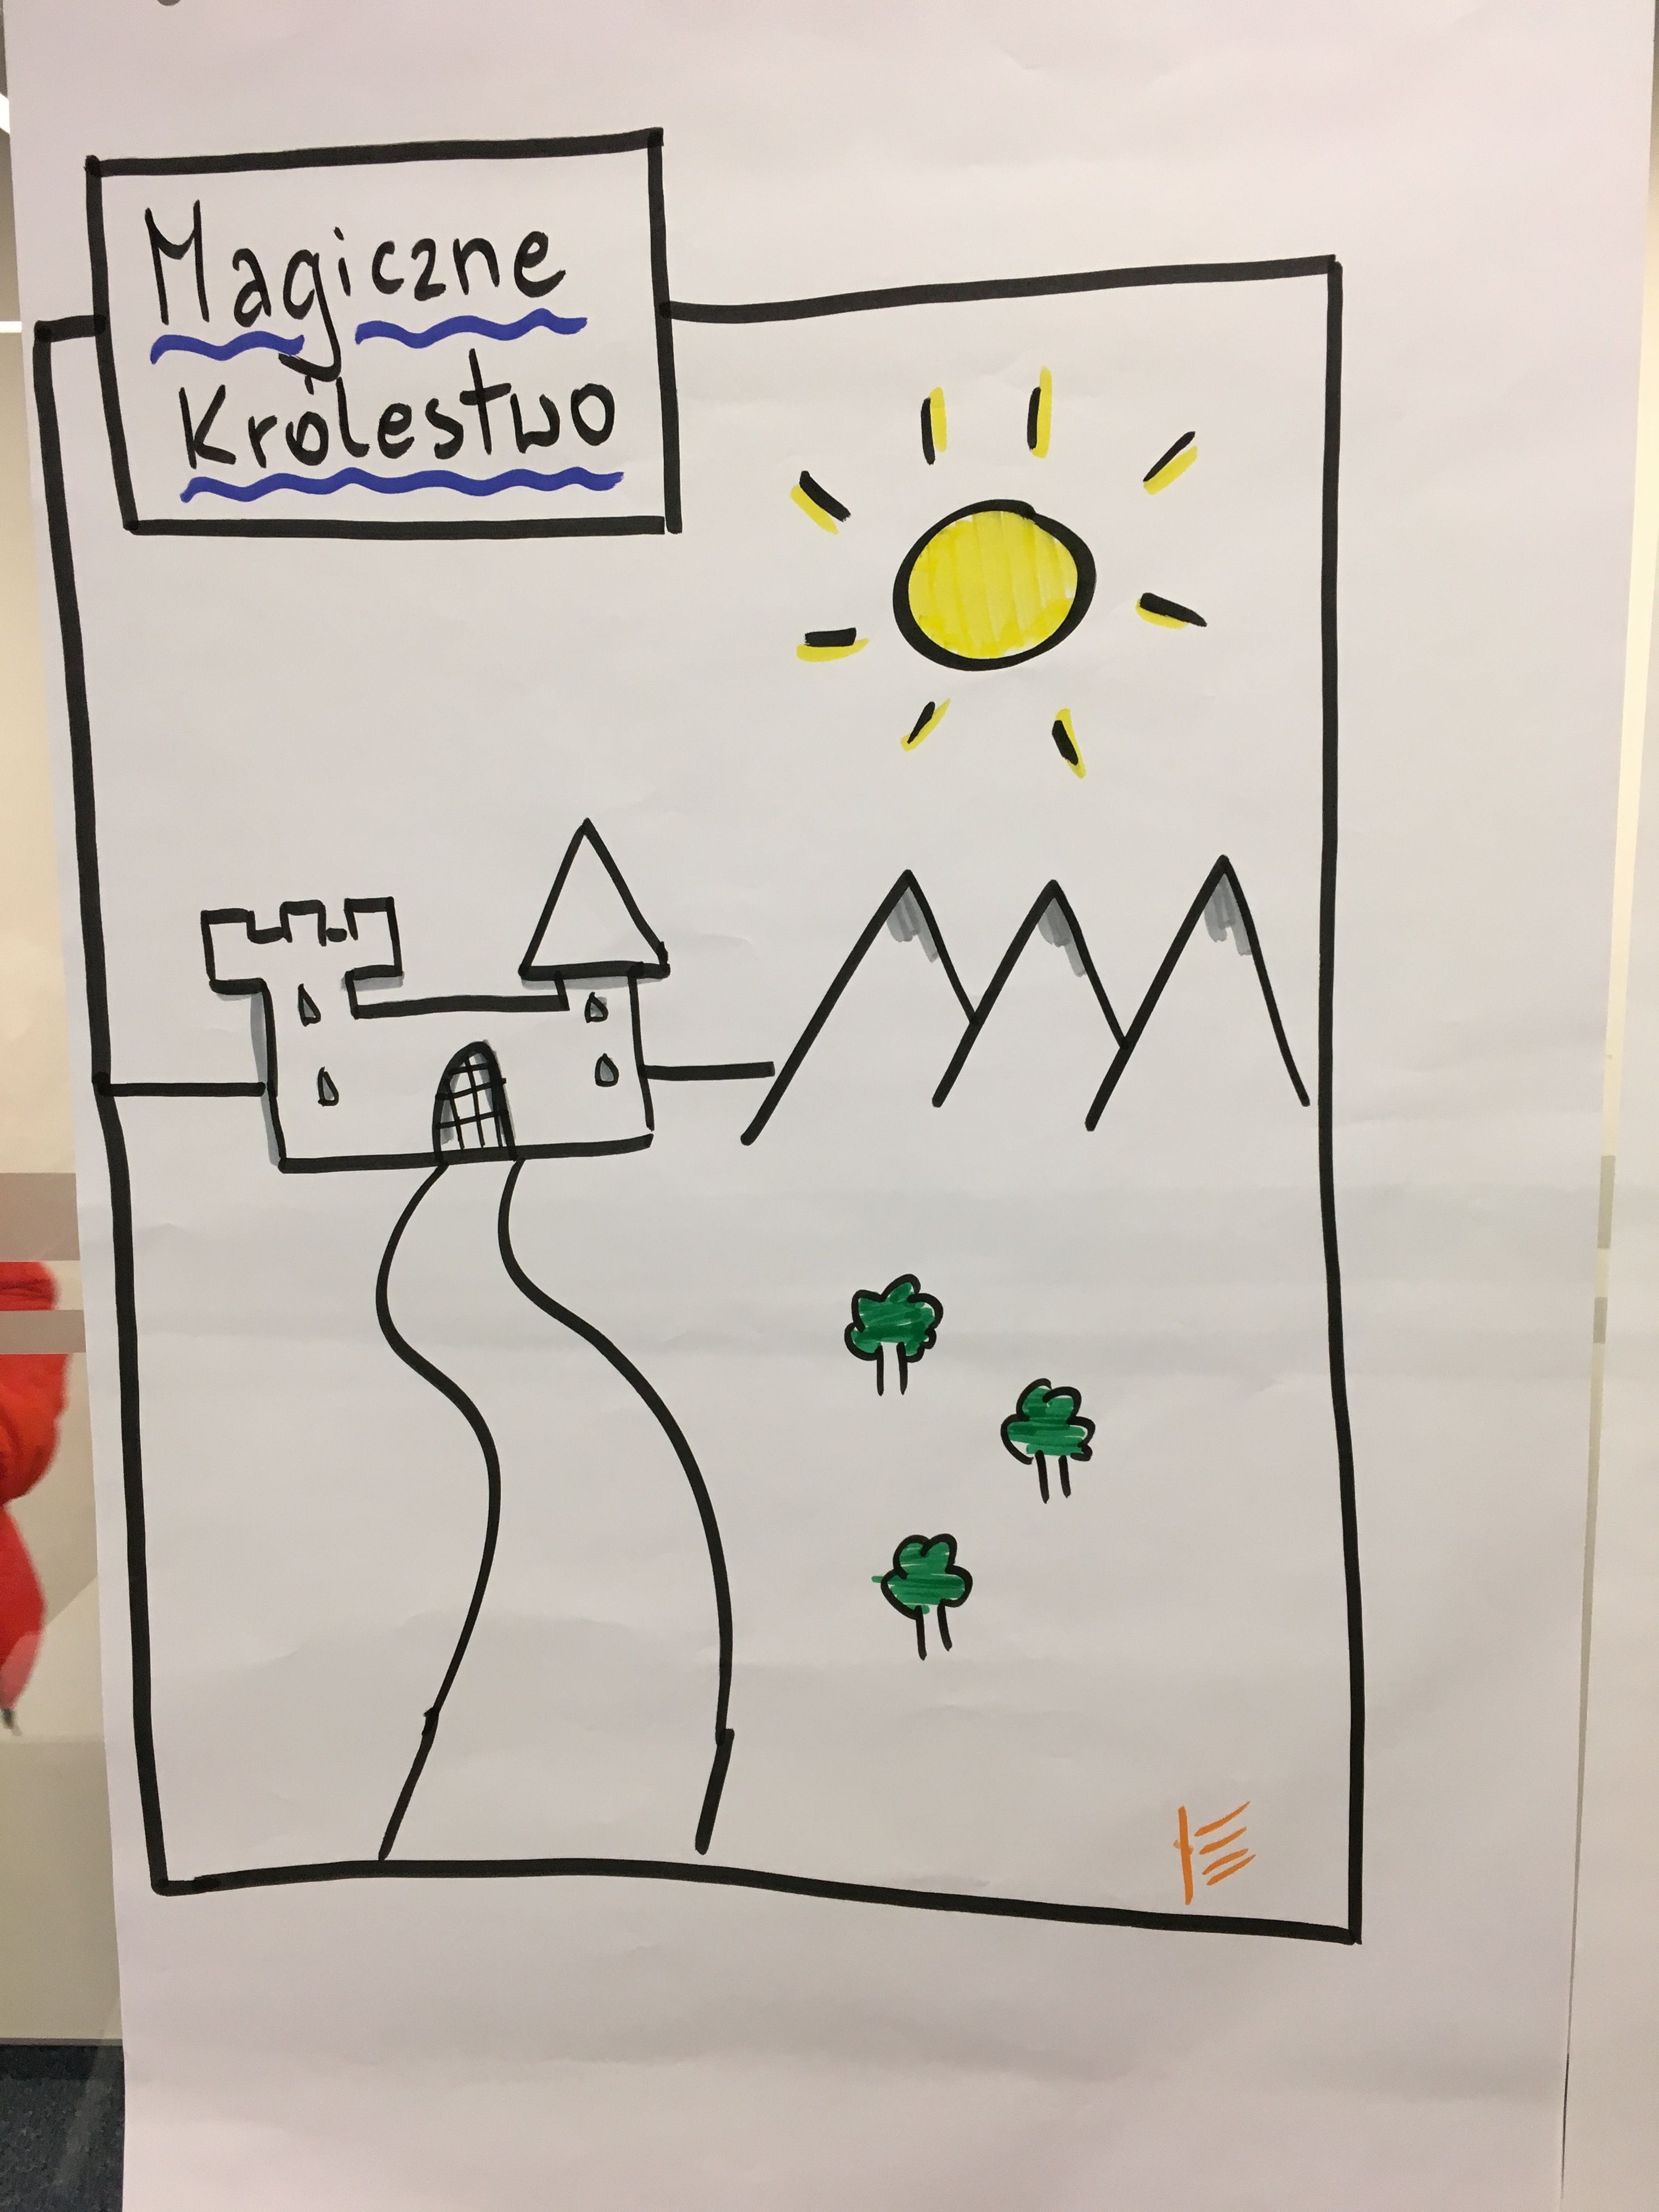 Magiczne
Królestwo